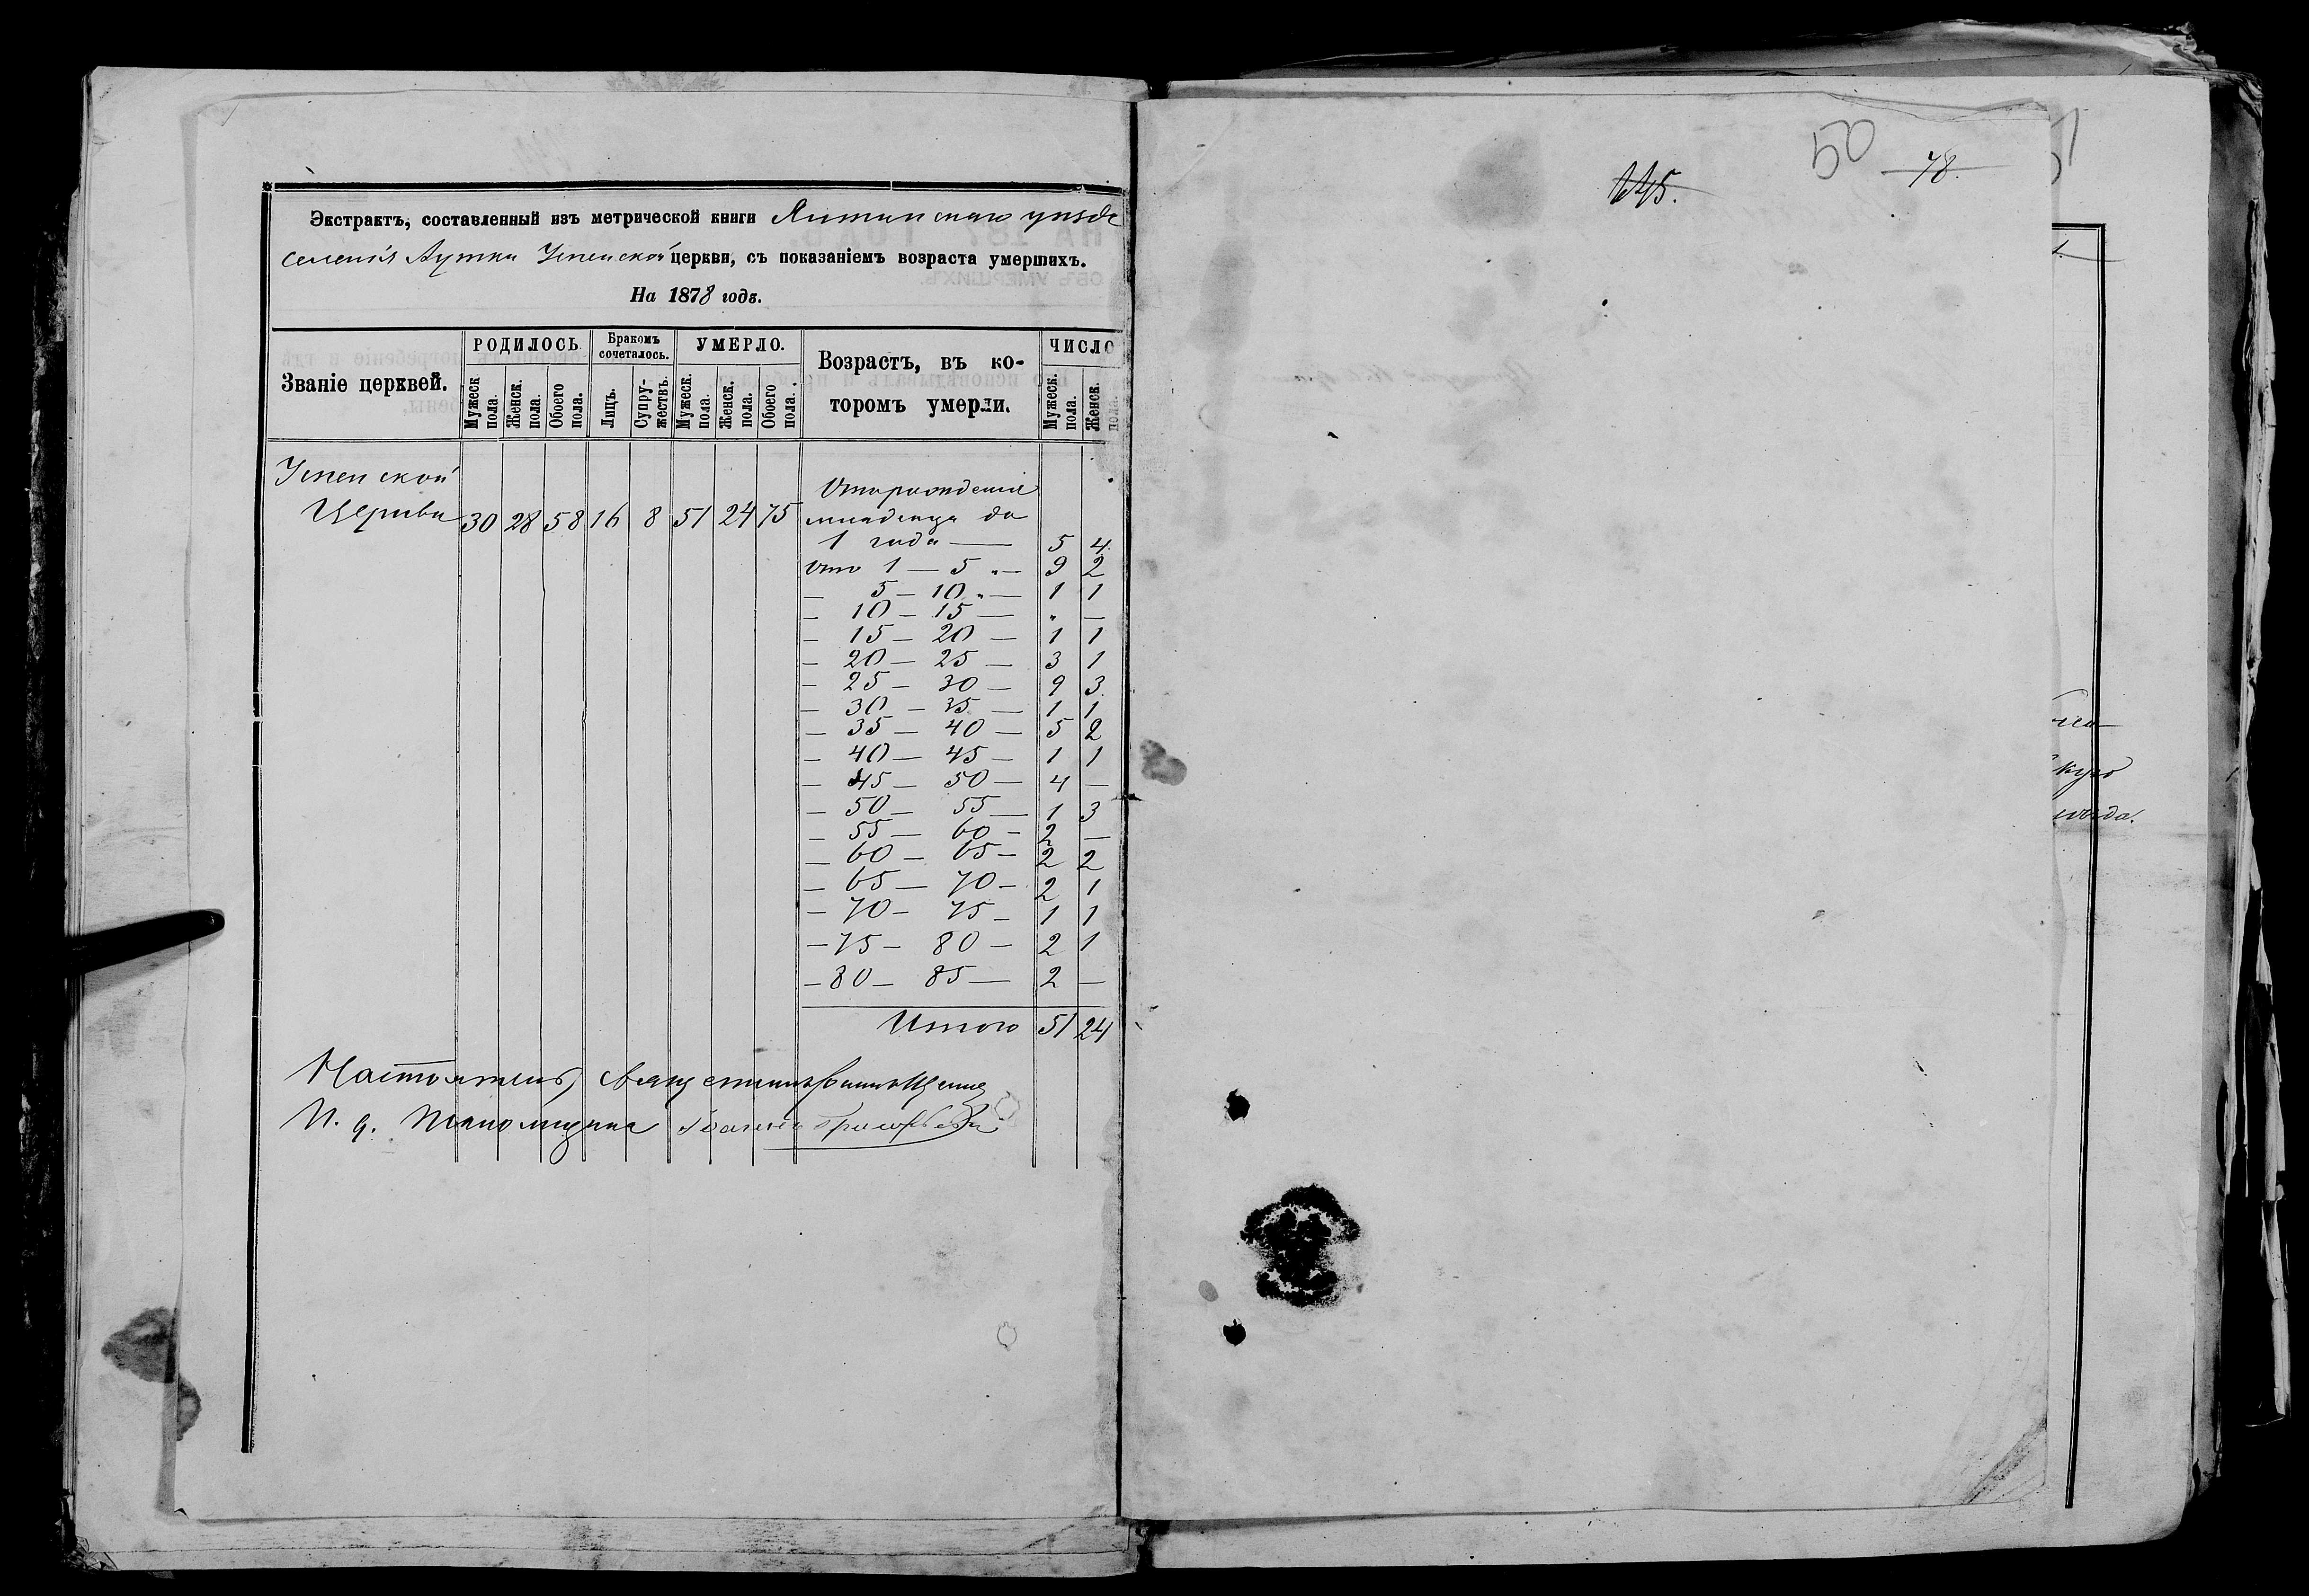 Экстрактъ, составленный изъ метрической книги Ялтинскаго уѣзда
селенія Аутки Успенской церкви, съ показаніемъ возраста умершихъ.
На 1878 годъ.
Званіе церквей.
РОДИЛОСЬ
Мужеск пола.
Женск. пола.
Обоего пола.
Бракомъ сочеталось.
Лицъ.
Супружествъ.
УМЕРЛО.
Мужеск. пола.
Женск. пола.
Обоего пола.
Возрастъ, въ ко-
торомъ умерли.
ЧИСЛО
Мужеск. пола.
Женск. пола.
Успенской
Церкви 30 28 58 16 8 51 24 75
Отъ рожденія
младенца до
1 года — 5 4
Отъ 1 — 5 „ — 9 2
— 5 — 10 „ — 1 1
— 10 — 15 — „ —
— 15 — 20 — 1 1
— 20 — 25 — 3 1
— 25 — 30 — 9 3
— 30 — 35 — 1 1
— 35 — 40 — 5 2
— 40 — 45 — 1 1
— 45 — 50 — 4 —
— 50 — 55 — 1 3
— 55 — 60 — 2 —
— 60 — 65 — 2 2
— 65 — 70 — 2 1
— 70 — 75 — 1 1
— 75 — 80 — 2 1
— 80 — 85 — 2 —
Итого 51 24
Настоятель, священникъ
И. д. Псаломщика Григорьевъ
145.
50
78.